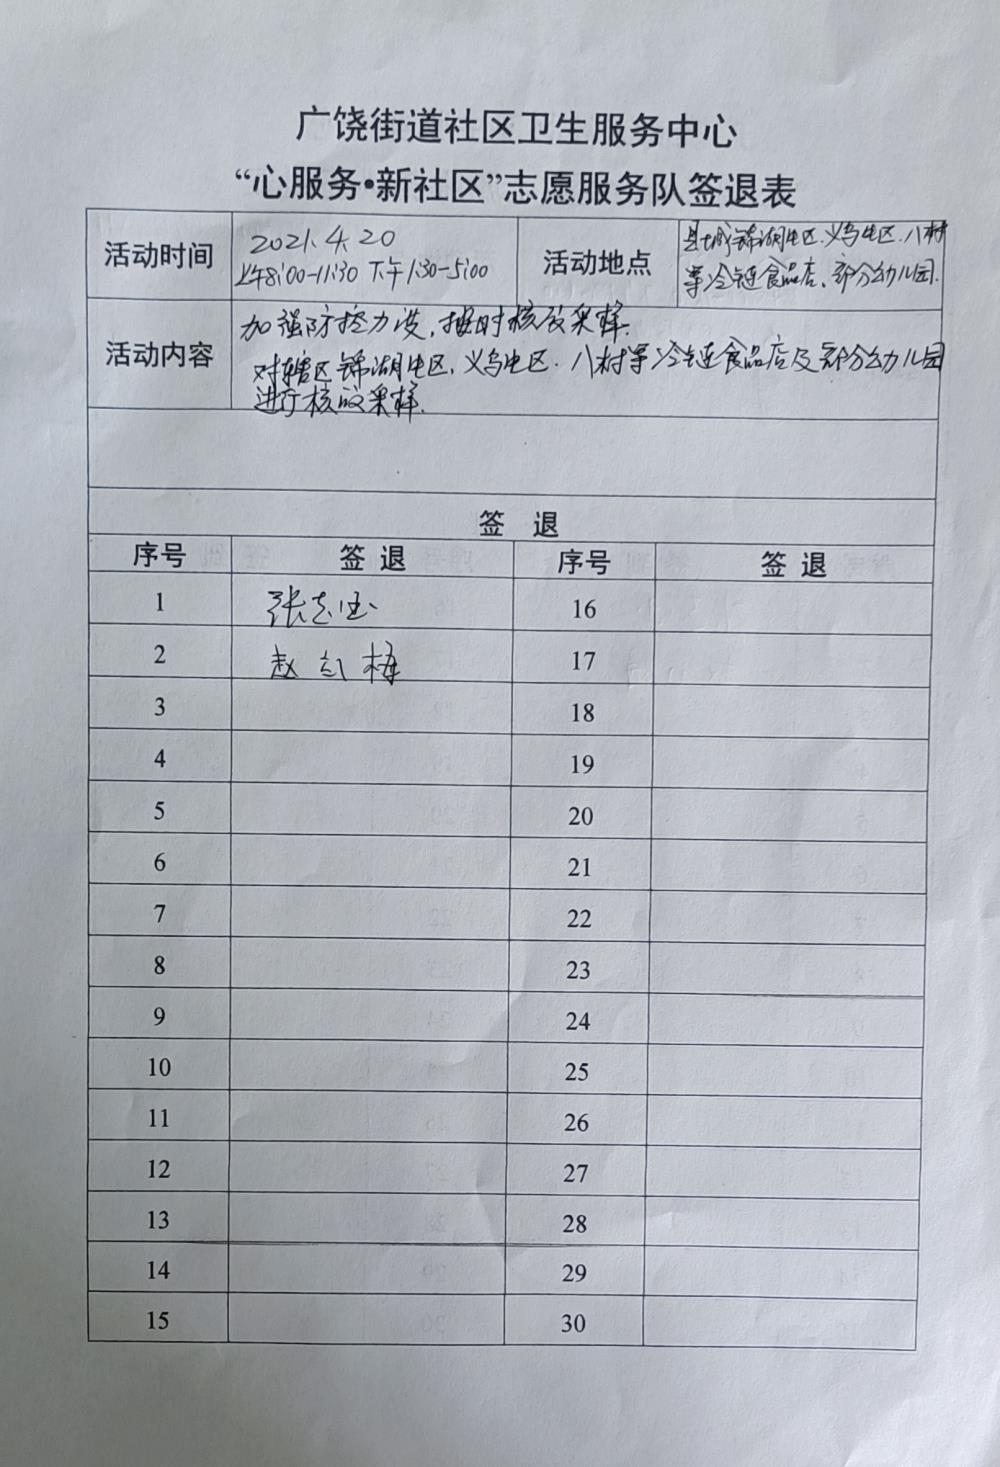 广饶街道社区卫生服务中心
“心服务•新社区”志愿服务队签退表
活动时间
2021.4.20
上午8:00-11:30 下午1:30-5:00
活动地点
县城锦湖电区、义乌电区、八村
等冷链食品店、部分幼儿园.
活动内容
加强防控力度,按时核酸采样.
对辖区锦湖电区、义乌电区、八村等冷链食品店及部分幼儿园
进行核酸采样.
签 退
序号 签 退 序号 签 退
1 张志 16
2 赵 梅 17
3 18
4 19
5 20
6 21
7 22
8 23
9 24
10 25
11 26
12 27
13 28
14 29
15 30